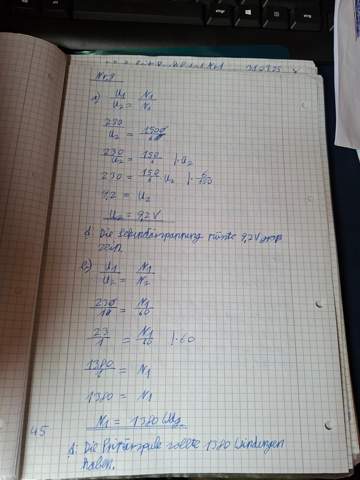 Nr. 9
a) U₁/U₂ = N₁/N₂
230/U₂ = 1500/60
230/U₂ = 150/6 | · U₂
230 = 150/6 U₂ | · 6/150
9,2 = U₂
U₂ = 9,2V
A: Die Sekundärspannung müsste 9,2V groß
sein.
b) U₁/U₂ = N₁/N₂
230/10 = N₁/60
23/1 = N₁/60 | · 60
1380/1 = N₁
1380 = N₁
N₁ = 1380 Wdg
45
A: Die Primärspule sollte 1380 Windungen
haben.